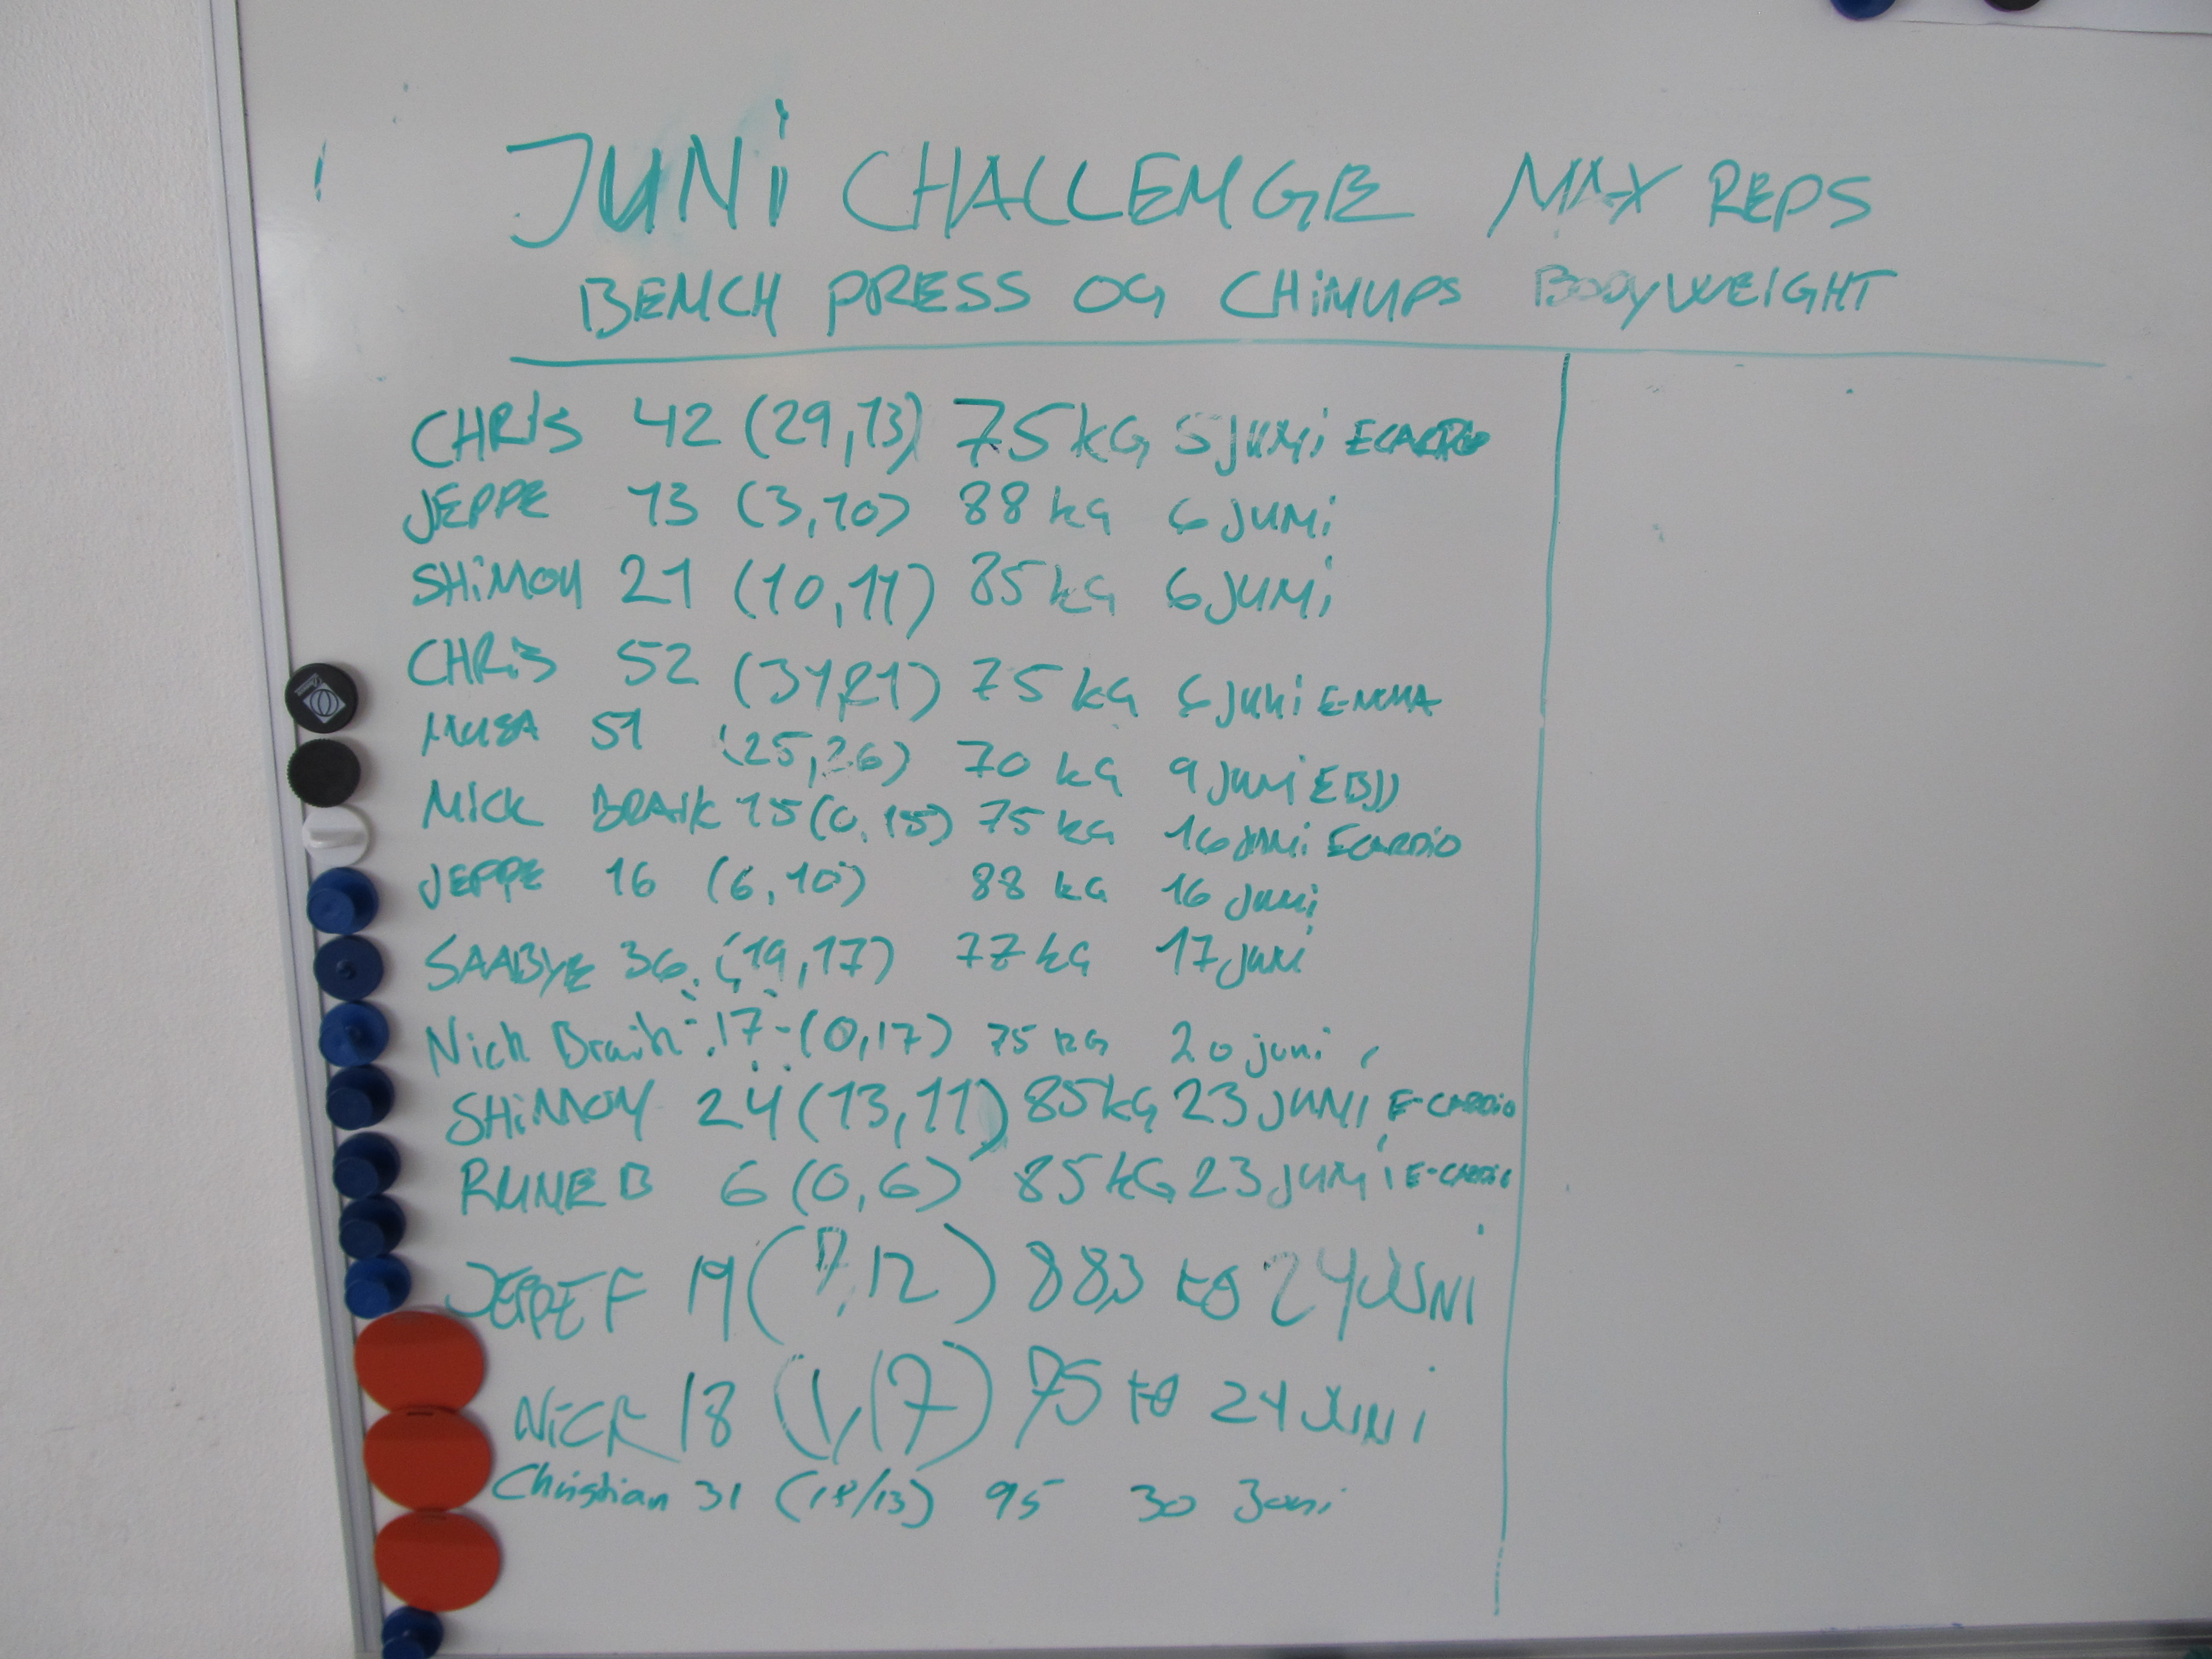 JUNI CHALLENGE MAX REPS
BENCH PRESS OG CHINUPS BODYWEIGHT
CHRIS 42 (29,13) 75 KG 5 JUNI ECARDIO
JEPPE 13 (3,10) 88 KG 6 JUNI
SHIMON 21 (10,11) 85 KG 6 JUNI
CHRIS 52 (31,21) 75 KG 6 JUNI E-MMA
MUSA 51 (25,26) 70 KG 9 JUNI EBJJ
NICK BRAIK 15 (0,15) 75 KG 16 JUNI ECARDIO
JEPPE 16 (6,10) 88 KG 16 JUNI
SAABYE 36 (19,17) 77 KG 17 juni
Nick Braik 17 (0,17) 75 KG 20 juni
SHIMON 24 (13,11) 85 KG 23 JUNI E-CARDIO
RUNE B 6 (0,6) 85 KG 23 JUNI E-CARDIO
JEPPE F 19 (7,12) 88,3 KG 24 JUNI
NICK 18 (1,17) 75 KG 24 JUNI
Christian 31 (18/13) 95 30 Juni